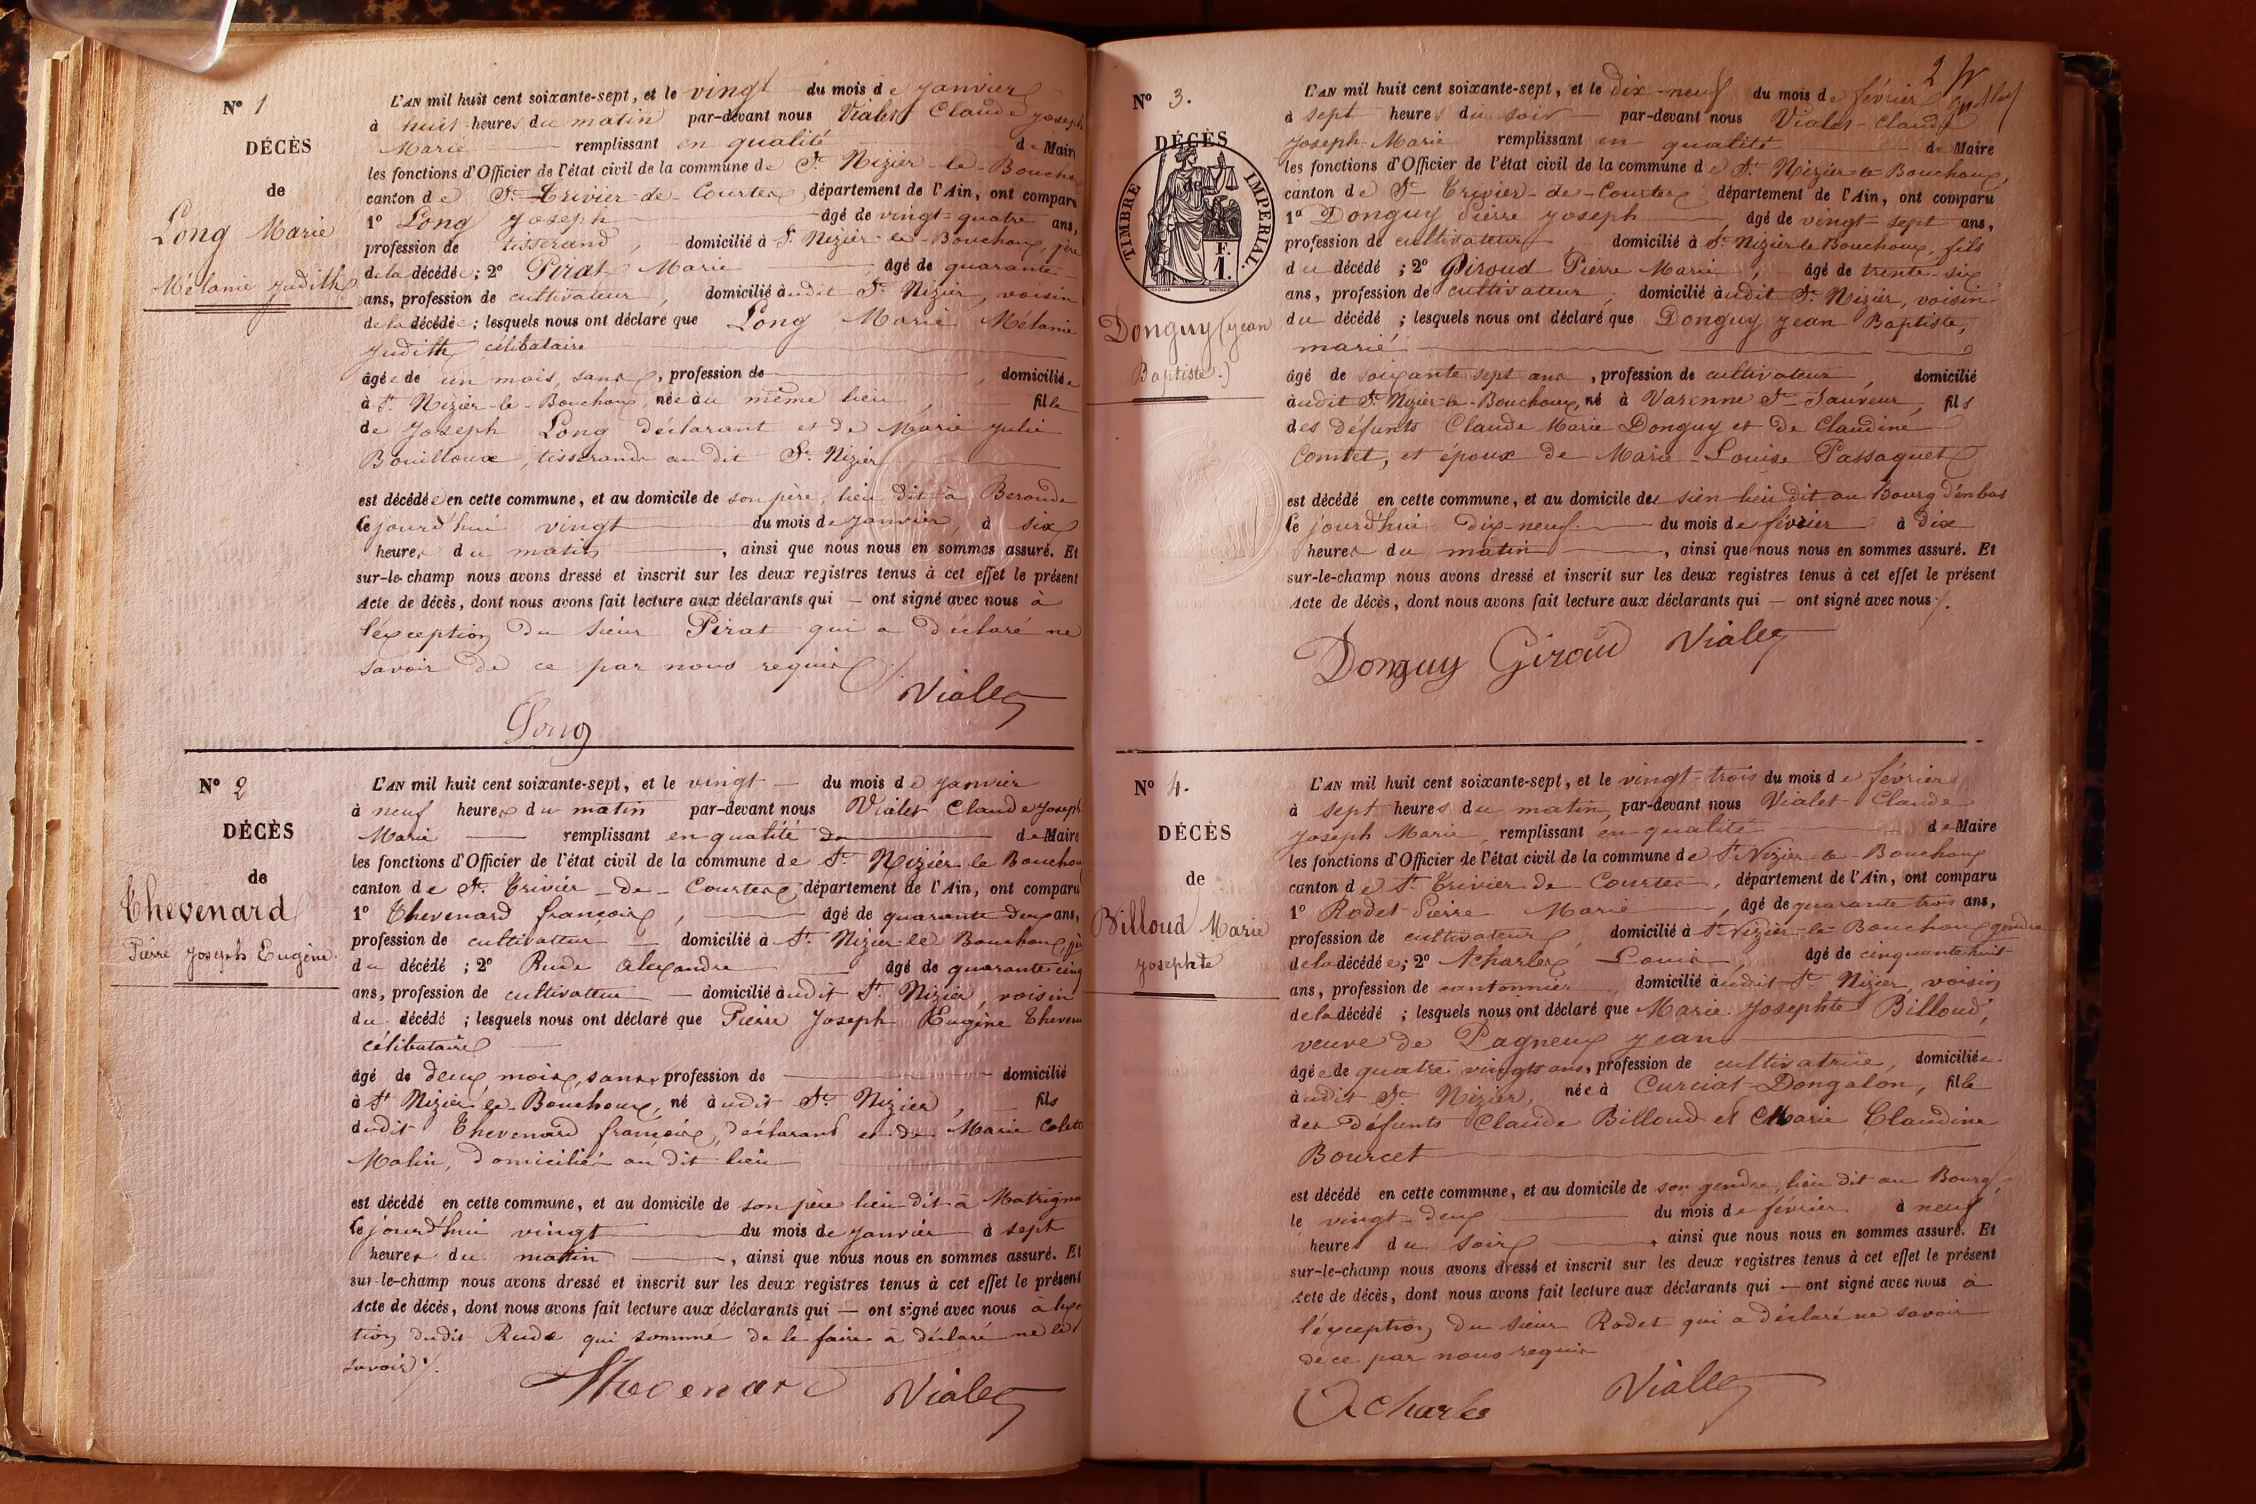 N° 1
DÉCÈS
de
Long Marie
Mélanie Judith
L'AN mil huit cent soixante-sept, et le vingt du mois de Janvier
à huit heures du matin par-devant nous Vialet Claude Joseph
Marie remplissant en qualité de Maire
les fonctions d'Officier de l'état civil de la commune de St. Nizier-le-Bouchoux
canton de St. Trivier-de-Courtes, département de l'Ain, ont comparu
1° Long Joseph âgé de vingt-quatre ans,
profession de tisserand, domicilié à St. Nizier-le-Bouchoux, père
de la décédée; 2° Pirat Marie âgé de quarante
ans, profession de cultivateur, domicilié audit St. Nizier, voisin
de la décédée; lesquels nous ont déclaré que Long Marie Mélanie
Judith, célibataire
âgée de un mois, sans, profession de, domiciliée
à St. Nizier-le-Bouchoux, née au même lieu, fille
de Joseph Long déclarant et de Marie Julie
Bouilloux, tisserands au dit St. Nizier
est décédée en cette commune, et au domicile de son père, lieu dit à Beroude
Cejourd'hui vingt du mois de Janvier, à six
heures du matin, ainsi que nous nous en sommes assuré. Et
sur-le-champ nous avons dressé et inscrit sur les deux registres tenus à cet effet le présent
Acte de décès, dont nous avons fait lecture aux déclarants qui — ont signé avec nous à
l'exception du sieur Pirat qui a déclaré ne
savoir de ce par nous requis
Vialet
Long
N° 2
DÉCÈS
de
Thevenard
Pierre Joseph Eugène
L'AN mil huit cent soixante-sept, et le vingt du mois de Janvier
à neuf heures du matin par-devant nous Vialet Claude Joseph
Marie remplissant en qualité de Maire
les fonctions d'Officier de l'état civil de la commune de St. Nizier-le-Bouchoux
canton de St. Trivier-de-Courtes, département de l'Ain, ont comparu
1° Thevenard françois, âgé de quarante deux ans,
profession de cultivateur domicilié à St. Nizier-le-Bouchoux, père
du décédé; 2° Rude Alexandre âgé de quarante cinq
ans, profession de cultivateur domicilié audit St. Nizier, voisin
du décédé; lesquels nous ont déclaré que Pierre Joseph Eugène Thevenard
célibataire
âgé de deux mois, sans profession de domicilié
à St Nizier-le-Bouchoux, né audit St. Nizier, fils
dudit Thevenard françois, déclarant et de Marie Colette
Malin, domiciliés au dit lieu
est décédé en cette commune, et au domicile de son père lieu dit à Matrigna
Cejourd'hui vingt du mois de Janvier à sept
heures du matin, ainsi que nous nous en sommes assuré. Et
sur-le-champ nous avons dressé et inscrit sur les deux registres tenus à cet effet le présent
Acte de décès, dont nous avons fait lecture aux déclarants qui — ont signé avec nous à l'excep
tion dudit Rude qui sommé de le faire a déclaré ne le
savoir.
Thevenard Vialet
2
N° 3.
DÉCÈS
de
TIMBRE IMPÉRIAL.
F.
1.
Donguy (Jean
Baptiste.)
L'AN mil huit cent soixante-sept, et le dix-neuf du mois de février
à sept heures du soir par-devant nous Vialet Claude
Joseph Marie remplissant en qualité de Maire
les fonctions d'Officier de l'état civil de la commune de St. Nizier-le-Bouchoux,
canton de St. Trivier-de-Courtes département de l'Ain, ont comparu
1° Donguy Pierre Joseph, âgé de vingt sept ans,
profession de cultivateur, domicilié à St. Nizier-le-Bouchoux, fils
du décédé; 2° Giroud Pierre Marie, âgé de trente-six
ans, profession de cultivateur, domicilié audit St. Nizier, voisin
du décédé; lesquels nous ont déclaré que Donguy Jean Baptiste,
marié
âgé de soixante sept ans, profession de cultivateur, domicilié
audit St. Nizier-le-Bouchoux, né à Varenne St-Sauveur, fils
des défunts Claude Marie Donguy et de Claudine
Comtet, et époux de Marie-Louise Passaquet
est décédé en cette commune, et au domicile de sien lieu dit au Bourg d'en bas
Cejourd'hui dix-neuf du mois de février à dix
heures du matin, ainsi que nous nous en sommes assuré. Et
sur-le-champ nous avons dressé et inscrit sur les deux registres tenus à cet effet le présent
Acte de décès, dont nous avons fait lecture aux déclarants qui — ont signé avec nous.
Donguy Giroud Vialet
N° 4.
DÉCÈS
de
Billoud Marie
Josephte
L'AN mil huit cent soixante-sept, et le vingt-trois du mois de février
à sept heures du matin, par-devant nous Vialet Claude
Joseph Marie, remplissant en qualité de Maire
les fonctions d'Officier de l'état civil de la commune de St Nizier-le-Bouchoux
canton de St. Trivier de Courtes, département de l'Ain, ont comparu
1° Rodet Pierre Marie, âgé de quarante trois ans,
profession de cultivateur, domicilié à St Nizier-le-Bouchoux, gendre
de la décédée; 2° Acharles Louis, âgé de cinquante huit
ans, profession de cantonnier, domicilié audit St. Nizier, voisin
de la décédé; lesquels nous ont déclaré que Marie Josephte Billoud,
veuve de Pagneux Jean
âgée de quatre vingts ans, profession de cultivatrice, domiciliée
audit St. Nizier, née à Curciat-Dongalon, fille
des défunts Claude Billoud et Marie Claudine
Bourcet
est décédé en cette commune, et au domicile de son gendre, lieu dit au Bourg,
le vingt-deux du mois de février à neuf
heures du soir, ainsi que nous nous en sommes assuré. Et
sur-le-champ nous avons dressé et inscrit sur les deux registres tenus à cet effet le présent
Acte de décès, dont nous avons fait lecture aux déclarants qui — ont signé avec nous à
l'exception du sieur Rodet qui a déclaré ne savoir
de ce par nous requis
Acharles Vialet